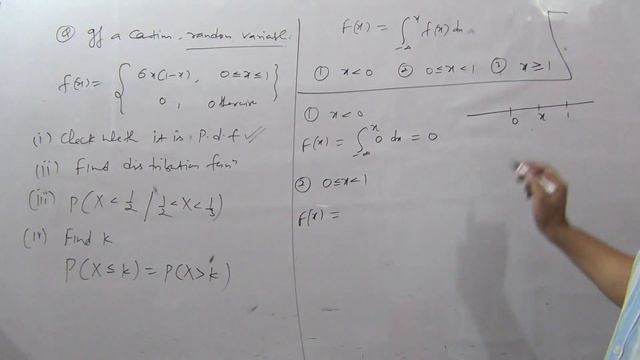 Q If a Contin. random variable
f(x) = { 6x(1-x), 0≤x≤1
0, otherwise }
(i) Check wheth it is P.d.f ✓
(ii) Find distribution funⁿ
(iii) P(X < 1/2 / 1/2 < X < 1/3)
(iv) Find k
P(X ≤ k) = P(X > k)
F(x) = ∫_{-∞}^{x} f(x) dx
① x<0 ② 0≤x<1 ③ x≥1
① x<0
F(x) = ∫_{-∞}^{x} 0 dx = 0
0 x 1
② 0≤x<1
F(x) =